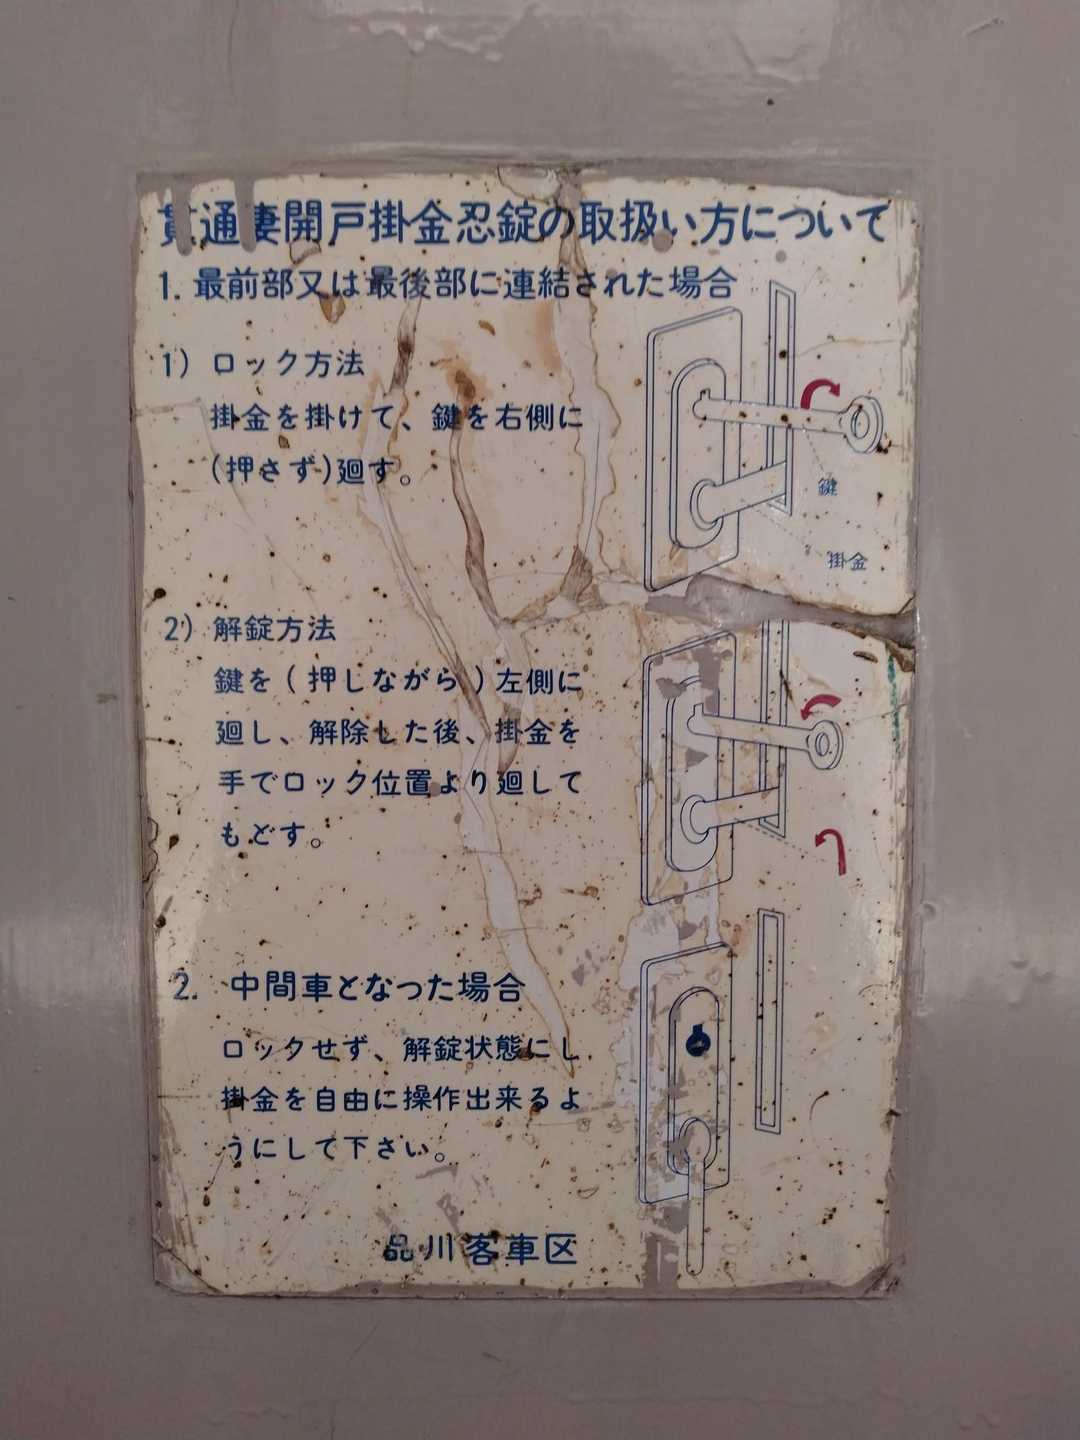 貫通妻開戸掛金忍錠の取扱い方について
1. 最前部又は最後部に連結された場合
1) ロック方法
掛金を掛けて、鍵を右側に
(押さず)廻す。
鍵
掛金
2) 解錠方法
鍵を(押しながら)左側に
廻し、解除した後、掛金を
手でロック位置より廻して
もどす。
2. 中間車となった場合
ロックせず、解錠状態にし
掛金を自由に操作出来るよ
うにして下さい。
品川客車区